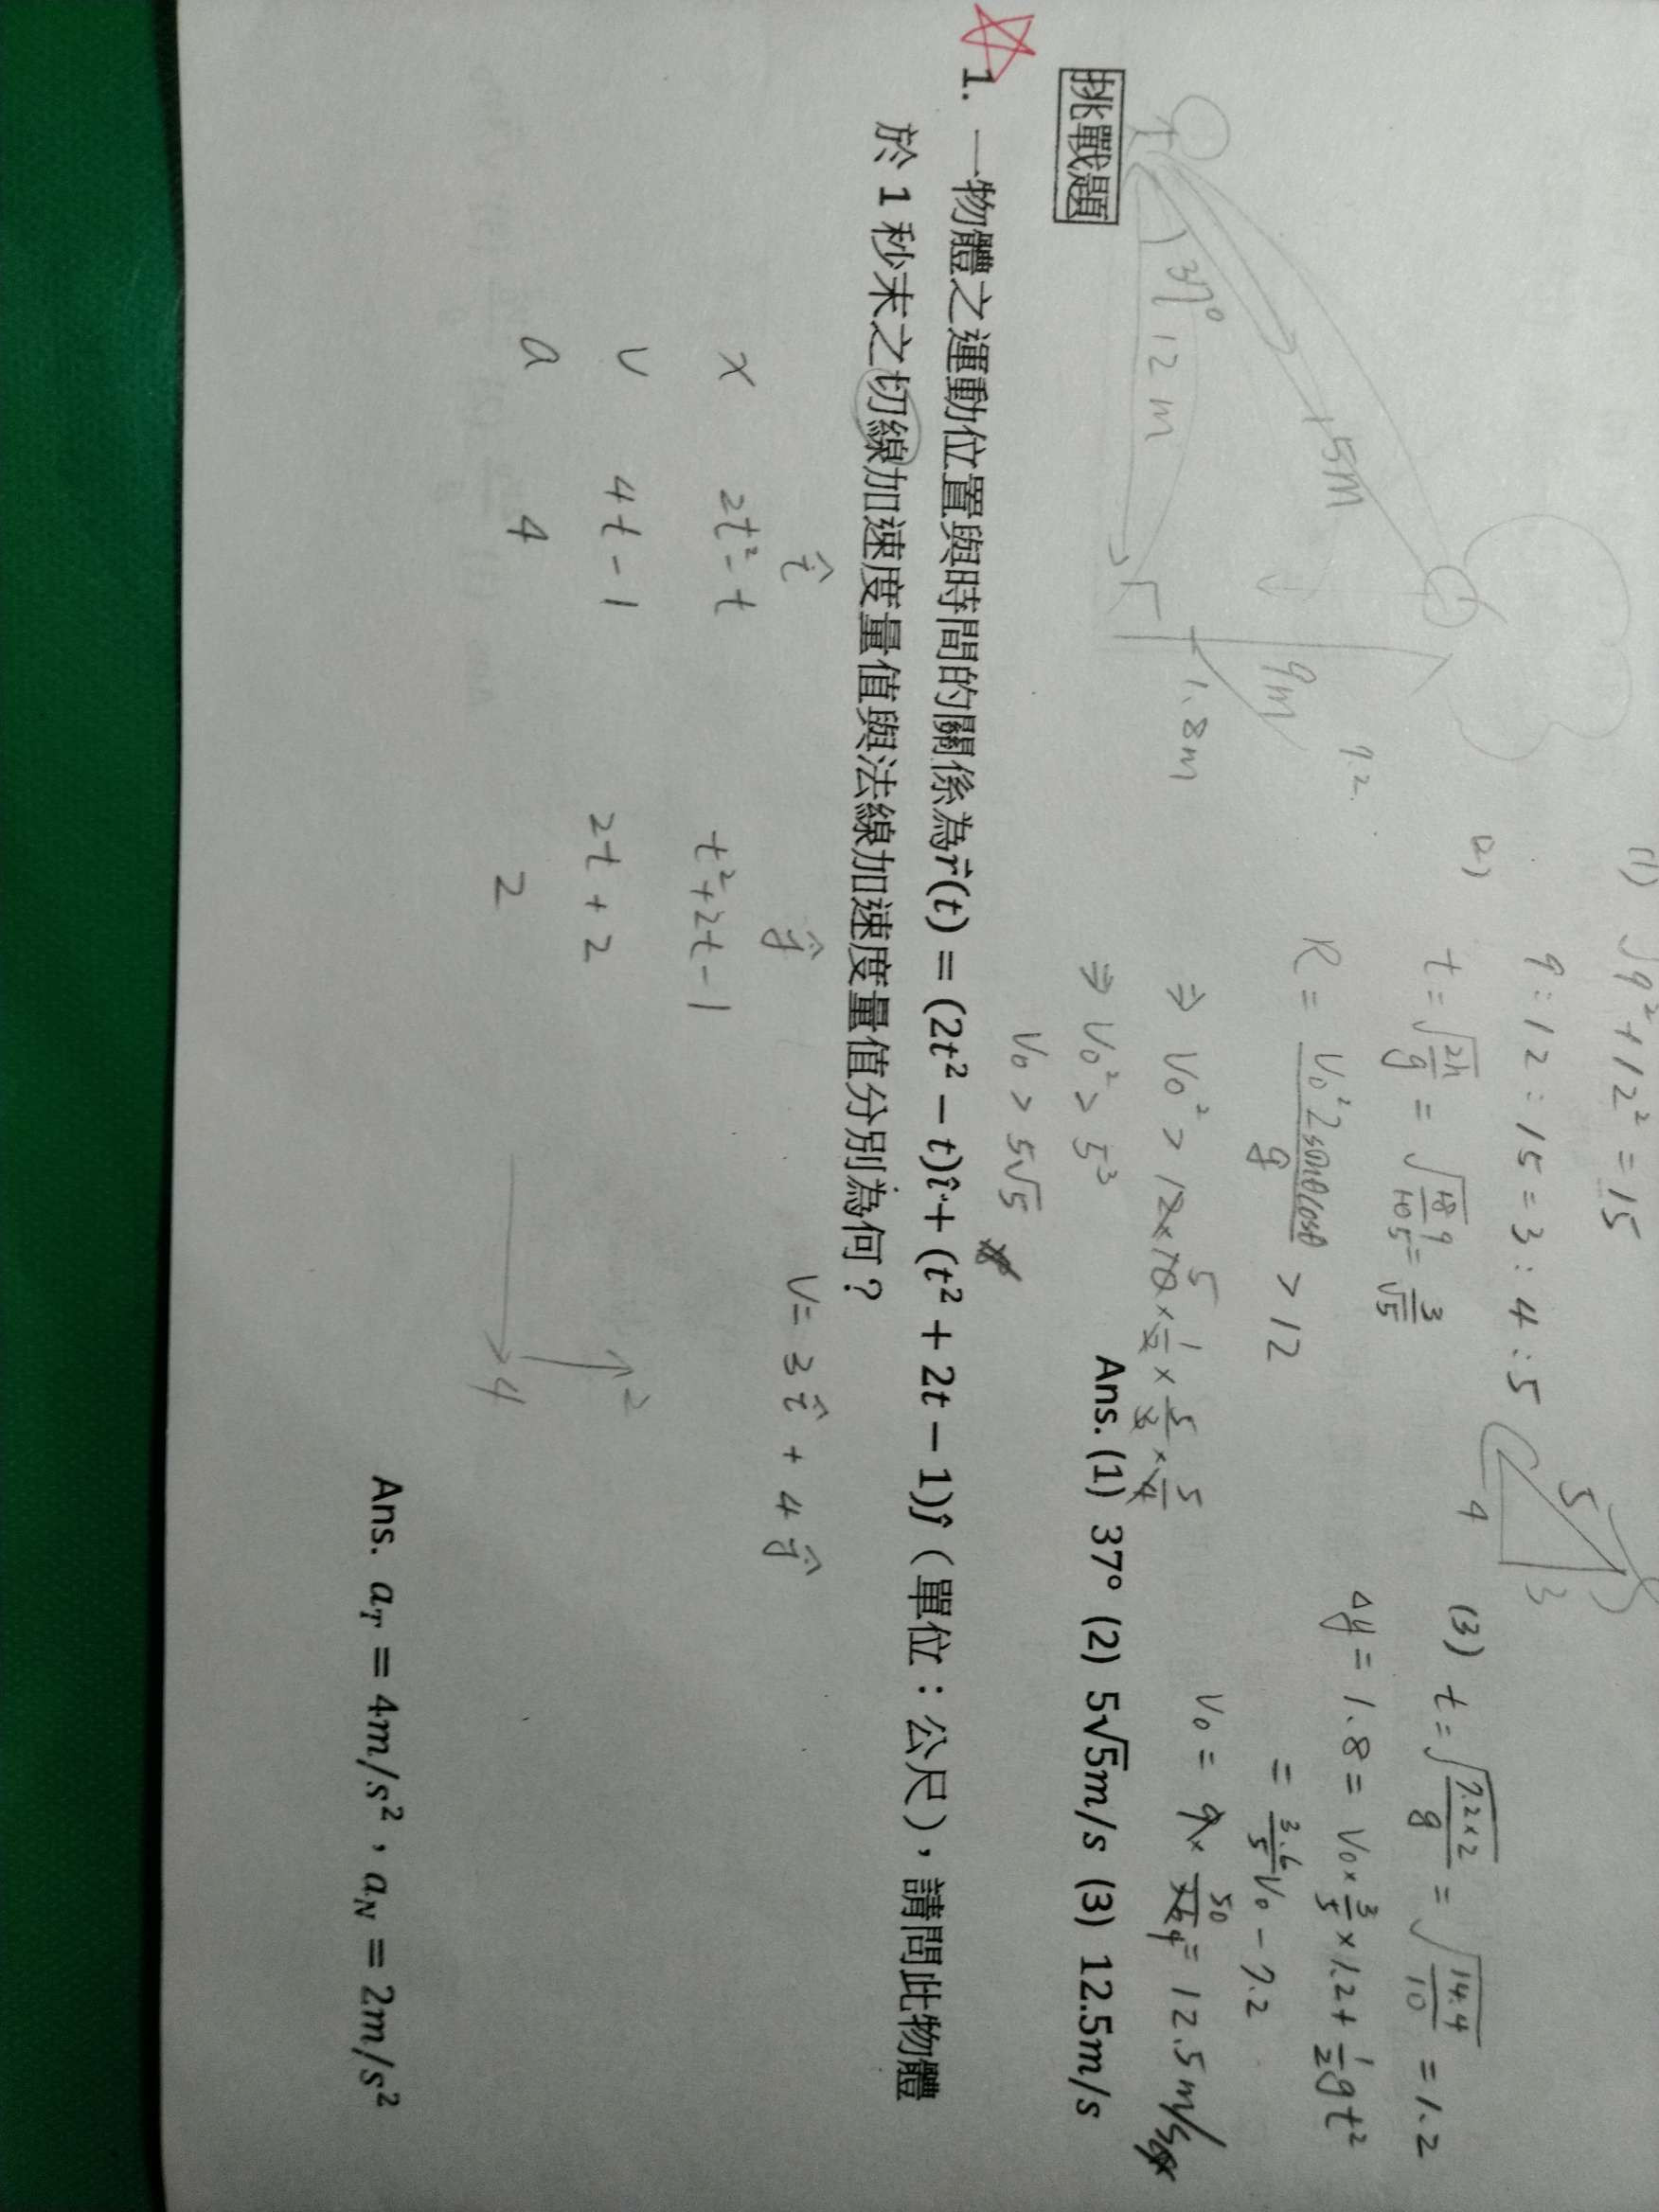 (1) √9²+12² = 15
9:12:15 = 3:4:5
5
4
3
(2)
t = √2h/g = √18/10 9/5 = 3/√5
R = V₀²2sinθcosθ/g > 12
⇒ V₀² > 12×10×1/2×5/3×5/4
⇒ V₀² > 5³
V₀ > 5√5
(3) t = √7.2×2/g = √14.4/10 = 1.2
Δy = 1.8 = V₀×3/5×1.2+1/2gt²
= 3.6/5V₀ - 7.2
= 12.5m/s
7.2
15m
9m
37°
12m
1.8m
Ans. (1) 37° (2) 5√5m/s (3) 12.5m/s
挑戰題
1. 一物體之運動位置與時間的關係為r⃗(t) = (2t² − t)î + (t² + 2t − 1)ĵ（單位：公尺），請問此物體
於 1 秒末之切線加速度量值與法線加速度量值分別為何？
î ĵ
V = 3î + 4ĵ
x 2t²-t t²+2t-1
v 4t-1 2t+2
a 4 2
2
4
Ans. a_T = 4m/s²，a_N = 2m/s²